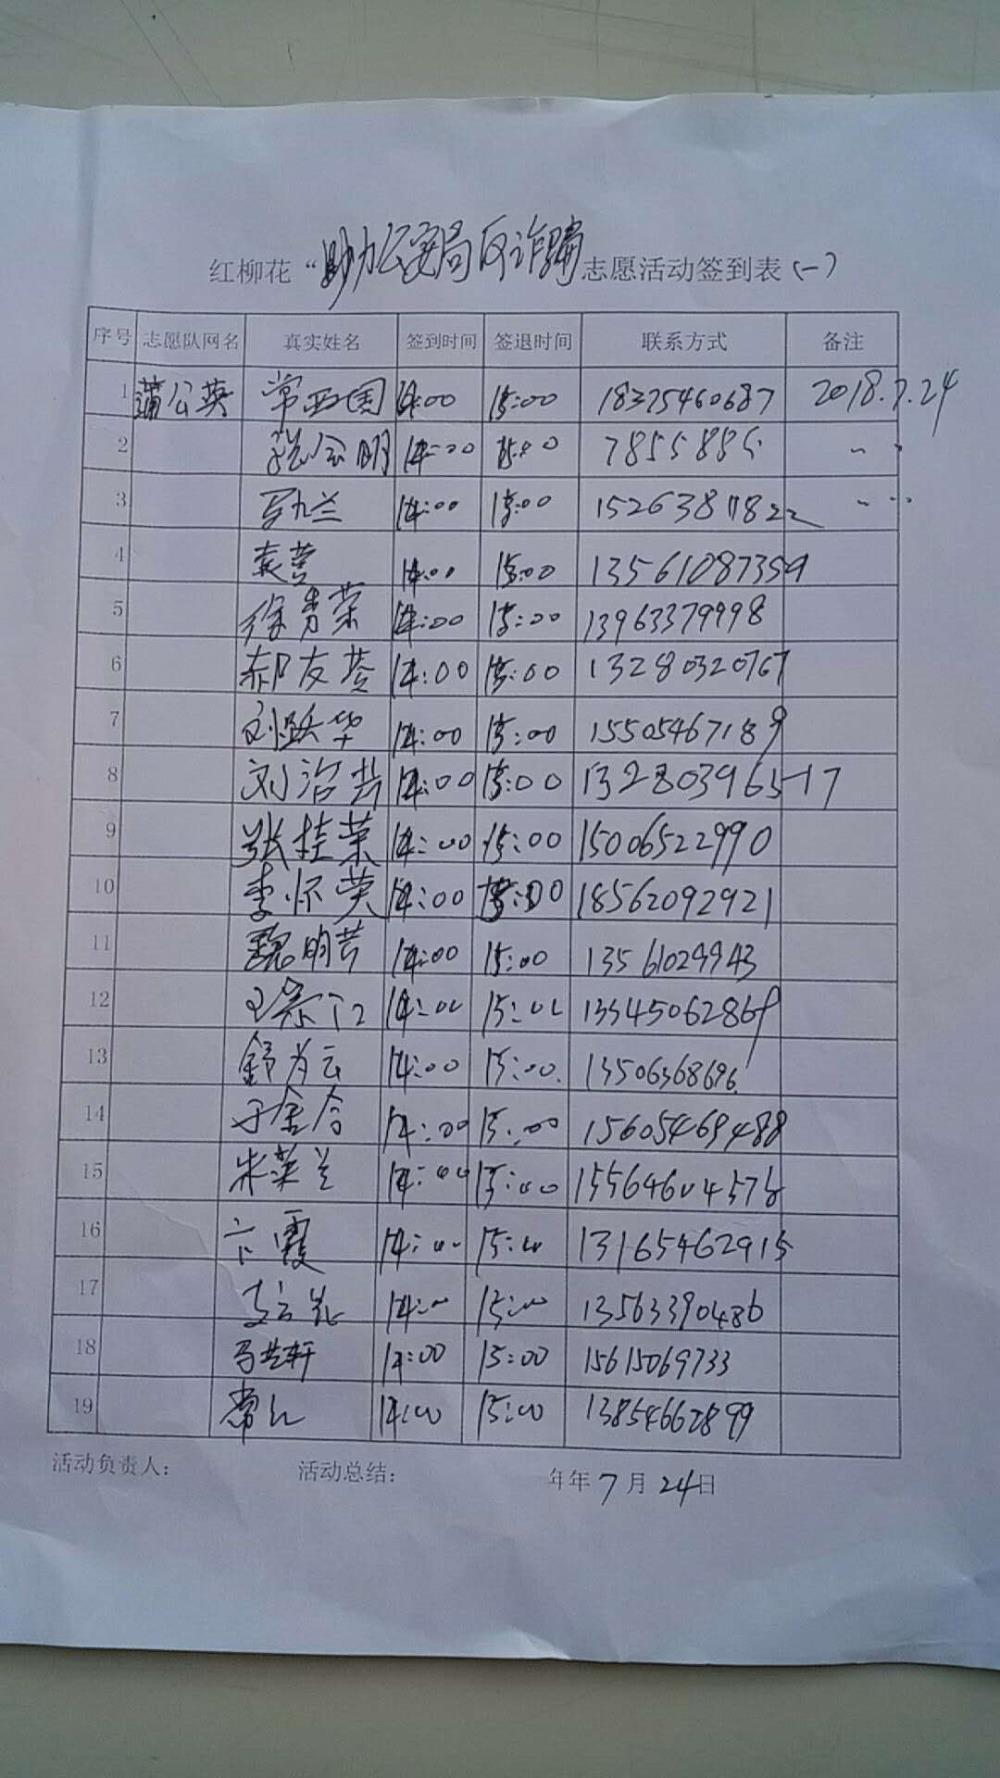 红柳花“助力公安局反诈骗志愿活动签到表(一)
序号 志愿队网名 真实姓名 签到时间 签退时间 联系方式 备注
1 蒲公英 常西国 14:00 15:00 18375460687 2018.7.24
2 14:00 15:00 7855885
3 马九兰 14:00 15:00 15263811822
4 袁营 14:00 15:00 13561087359
5 徐秀荣 14:00 15:00 13963379998
6 郝友荟 14:00 15:00 13280320767
7 刘跃华 14:00 15:00 15505467189
8 刘治芸 14:00 15:00 13280396517
9 张桂荣 14:00 15:00 15006522990
10 李怀英 14:00 15:00 18562092921
11 魏明芳 14:00 15:00 13561029943
12 14:00 15:00 13345062869
13 舒为云 14:00 15:00 13506368696
14 于金合 14:00 15:00 15605469488
15 朱荣兰 14:00 15:00 15564604576
16 卞霞 14:00 15:00 13165462915
17 14:00 15:00 13563390486
18 马芸轩 14:00 15:00 15615069733
19 常红 14:00 15:00 13854662899
活动负责人: 活动总结: 年年7月24日